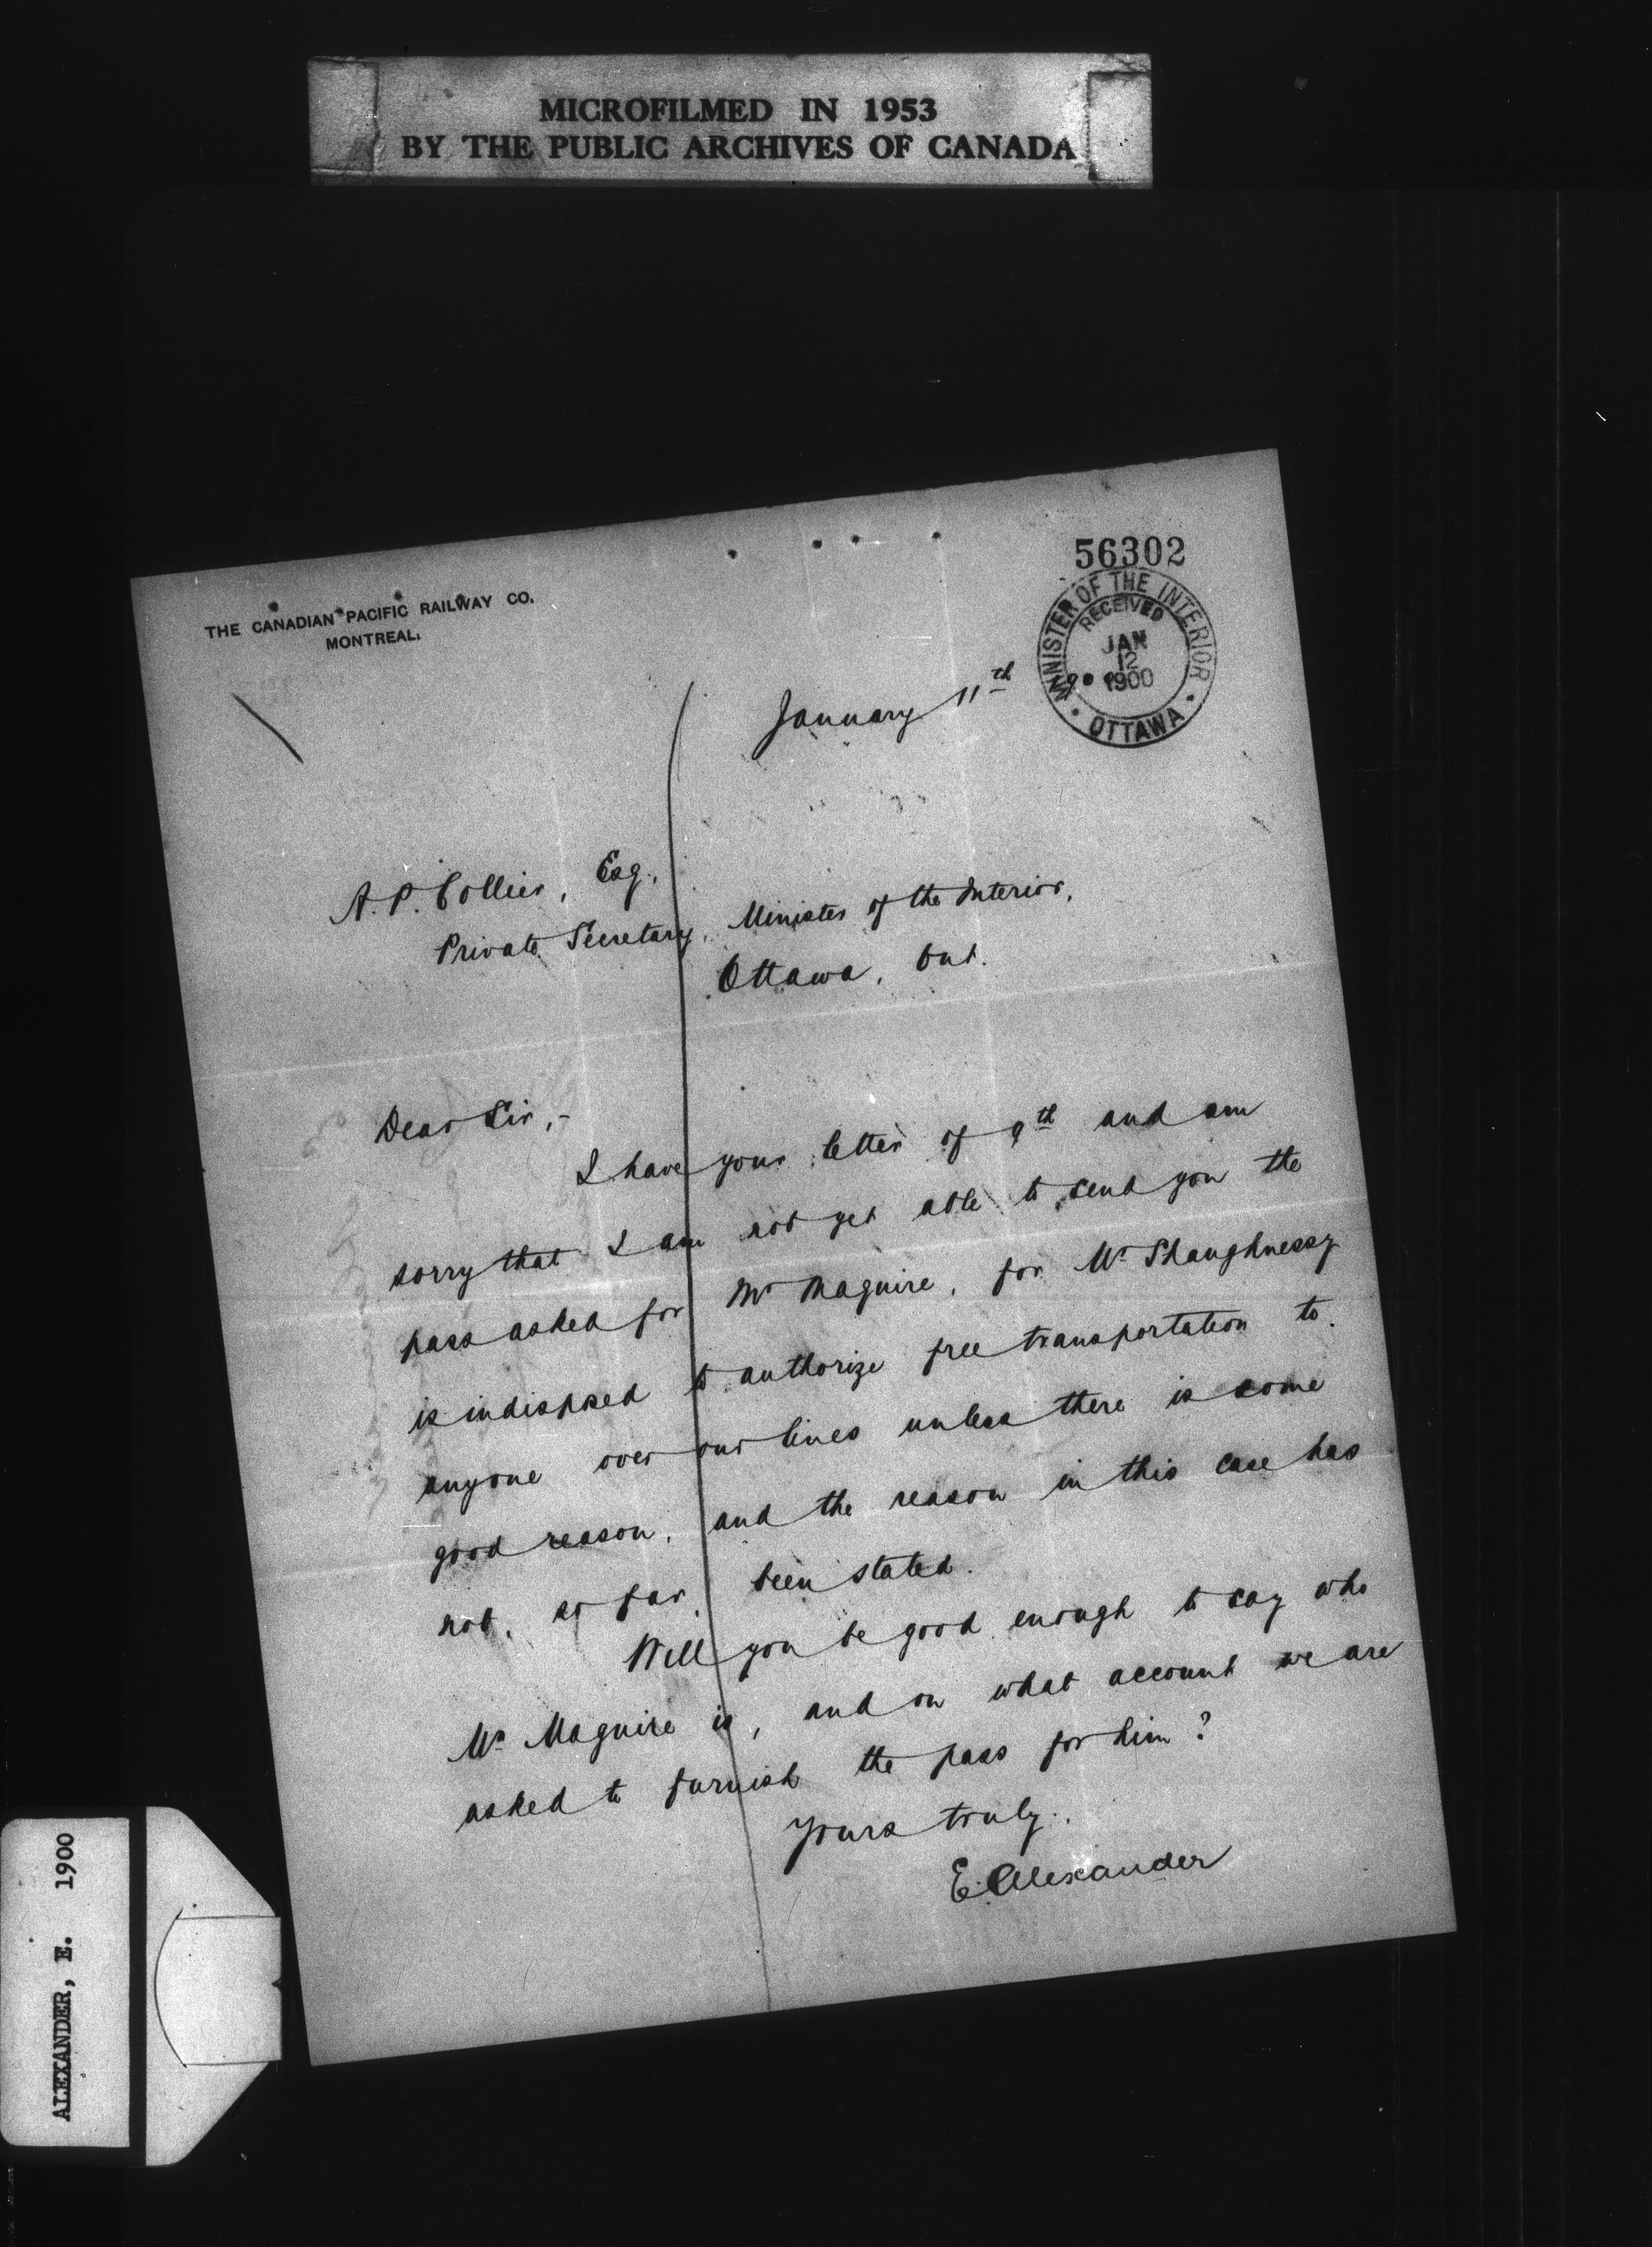 MICROFILMED IN 1953
BY THE PUBLIC ARCHIVES OF CANADA
56302
THE CANADIAN PACIFIC RAILWAY CO.
MONTREAL.
MINISTER OF THE INTERIOR
RECEIVED
JAN
12
1900
OTTAWA
January 11th
A. P. Collier, Esq.,
Private Secretary, Minister of the Interior,
Ottawa, Ont.
Dear Sir,-
I have your letter of 9th and am
sorry that I am not yet able to send you the
pass asked for Mr Maguire, for Mr Shaughnessy
is indisposed to authorize free transportation to
anyone over our lines unless there is some
good reason, and the reason in this case has
not, so far, been stated.
Will you be good enough to say who
Mr Maguire is, and on what account we are
asked to furnish the pass for him?
Yours truly.
E. Alexander
ALEXANDER, E. 1900